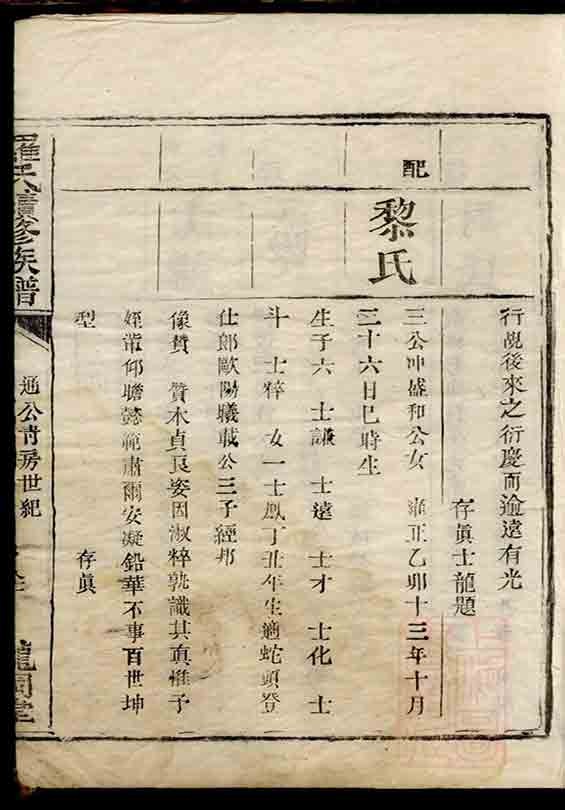 行覘後來之衍慶而逾遠有光
存眞士龍題
配
黎氏
三公冲盛和公女 雍正乙卯十三年十月
二十六日巳時生
生子六 士謙 士遠 士才 士化 士
斗 士粹 女一士鳳丁丑年生適蛇頭登
仕郎歐陽曦載公三子經邦
像贊 質木貞良姿因淑粹孰識其眞惟予
姪軰仰瞻懿範肅爾安凝鉛華不事百世坤
型 存眞
羅氏續修族譜
通公青房世紀